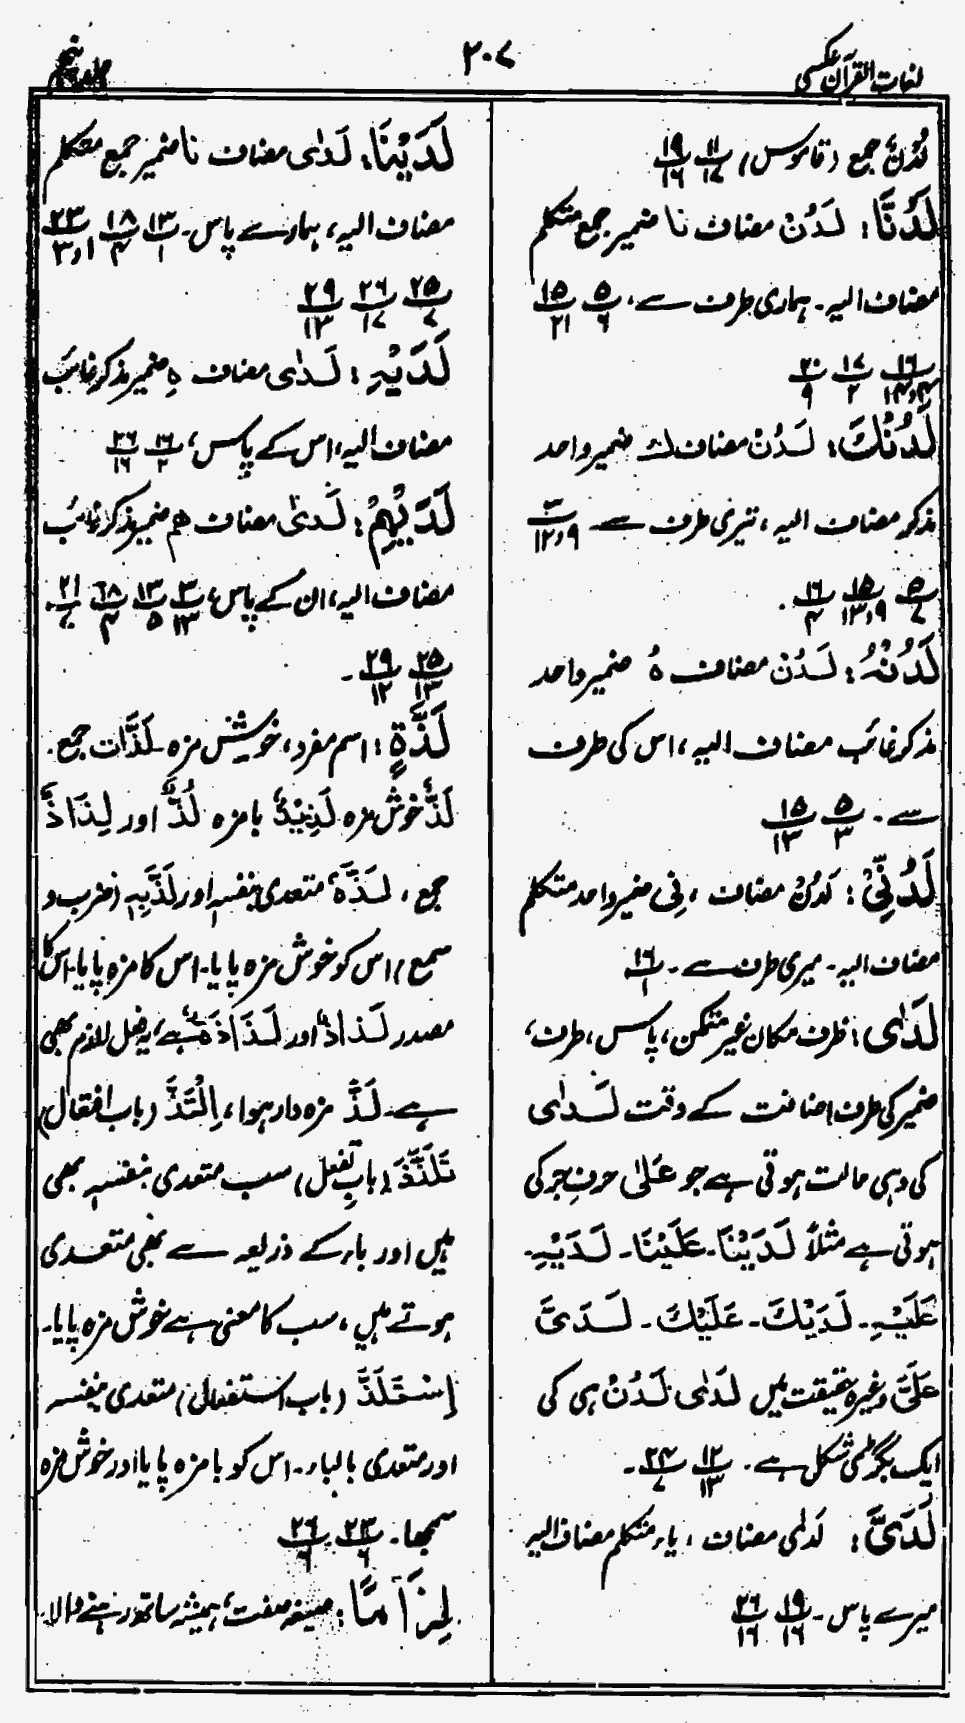 لغات القرآن عکسی
۲۰۷
جلد پنجم
لُدُنٌ جمع (قاموس) ۱۱/۱۷ ۱۹/۱۶
لَدُنَّا: لَدُنْ مضاف نا ضمیر جمع متکلم
مضاف الیہ۔ ہماری طرف سے، ۵/۶ ۱۵/۲۱
۱۶/۱۴،۴ ۱۷/۲ ۲۰/۹
لَدُنْكَ: لَدُنْ مضاف ك ضمیر واحد
مذکر مضاف الیہ، تیری طرف سے ۳/۱۲،۹
۵/۷ ۱۵/۱۳،۹ ۱۶/۴۔
لَدُنْهُ: لَدُن مضاف ہُ ضمیر واحد
مذکر غائب مضاف الیہ، اس کی طرف
سے۔ ۵/۳ ۱۵/۱۳
لَدُنِّیْ: لَدُنْ مضاف، نِی ضمیر واحد متکلم
مضاف الیہ۔ میری طرف سے۔ ۱۶/۱
لَدَی: ظرف مکان غیر متمکن، پاس، طرف،
ضمیر کی طرف اضافت کے وقت لَدٰی
کی وہی حالت ہوتی ہے جو عَلٰی حرفِ جر کی
ہوتی ہے مثلاً لَدَيْنَا۔ عَلَيْنَا۔ لَدَيْهِ۔
عَلَيْهِ۔ لَدَيْكَ۔ عَلَيْكَ۔ لَدَیَّ
عَلَیَّ وغیرہ حقیقت میں لَدٰی لَدُنْ ہی کی
ایک بگڑی شکل ہے۔ ۱۲/۱۳ ۲۴/۷۔
لَدَیَّ: لَدٰی مضاف، یاء متکلم مضاف الیہ
میرے پاس۔ ۱۹/۱۶ ۲۶/۱۶
لَدَيْنَا: لَدٰی مضاف نا ضمیر جمع متکلم
مضاف الیہ، ہمارے پاس۔ ۱۳/۱ ۱۸/۴ ۲۳/۳،۱
۲۵/۷ ۲۶/۱۷ ۲۹/۱۳
لَدَيْهِ: لَدٰی مضاف ہِ ضمیر مذکر غائب
مضاف الیہ، اس کے پاس، ۱۶/۲ ۲۶/۱۶
لَدَيْهِمْ: لَدٰی مضاف ھم ضمیر مذکر غائب
مضاف الیہ، ان کے پاس، ۳/۱۳ ۱۳/۵ ۱۸/۴ ۲۱/۷
۲۵/۱۳ ۲۹/۱۲۔
لَذَّةٍ: اسم مفرد، خوش مزہ لَذَّات جمع۔
لَذٌّ خوش مزہ لَذِيْذٌ بامزہ لُذٌّ اور لِذَاذٌ
جمع، لَذَّہٗ متعدی بنفسہ اور لَذَّ بِہٖ (ضرب و
سمع) اس کو خوش مزہ پایا۔ اس کا مزہ پایا۔ اس کا
مصدر لَذاذٌ اور لَذَاذَةٌ ہے، یہ فعل لازم بھی
ہے۔ لَذَّ مزہ دار ہوا، اِلْتَذَّ (باب افتعال)
تَلَذَّذَ (بابِ تفعل) سب متعدی بنفسہ بھی
ہیں اور باء کے ذریعہ سے بھی متعدی
ہوتے ہیں، سب کا معنی ہے خوش مزہ پایا۔
اِسْتَلَذَّ (باب استفعال) متعدی بنفسہ
اور متعدی بالباء۔ اس کو بامزہ پایا اور خوش مزہ
سمجھا۔ ۲۳/۶ ۲۶/۶
لِزَامًا: صیغہ صفت، ہمیشہ ساتھ رہنے والا۔